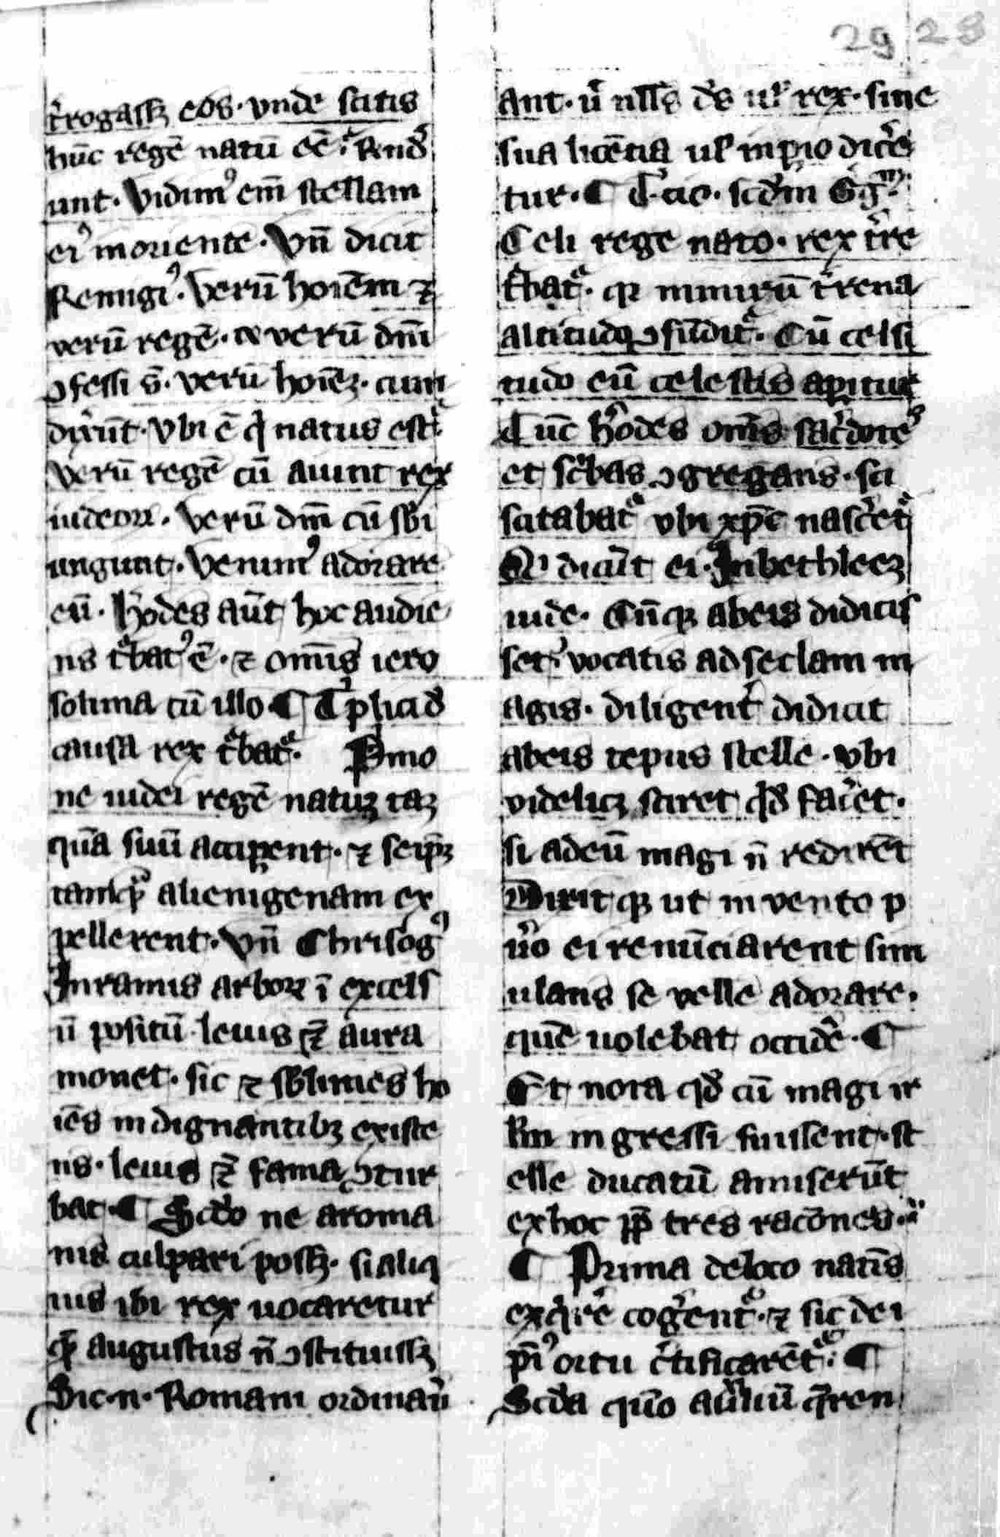 29 28
t̉rogasꝫ eos · vnde scitis
hūc regē natū eē · Rn̄d
unt · Vidim᷒ em̄ stellam
ei᷒ in oriente · Vn̄ dicit
Remigi᷒ · Verū hoīem ⁊
verū regē · ⁊ verū dm̄
ꝯfessi s̄ · verū hoīeꝫ · cum
dixr̄nt · Vbi ē q̇ natus est
Verū regē cū aiunt rex
iudeoꝝ · Verū dm̄ cū sbi
ungunt · Venim᷒ adorare
eū · H̓odes aūt hoc audie
ns tᷓbat᷒ ē · ⁊ om̄is iero
solima cū illo ¶ Tͥplici d̄
causa rex tᷓbatᷓ · Pͥmo
ne iudei regē natuꝫ taꝫ
quā suū accipent · ⁊ seip̄ꝫ
tamqᷓ alienigenam ex
pellerent · Vn̄ Chrisog᷒
In ramis arboꝝ ī excels
ū positū leuis ēt̄ aura
mouet · sic ⁊ sblimes ho
īes in dignantibꝫ existe
ns · leuis ēt̄ fama ꝯtur
bat · ¶ Scd̄o ne a roma
nis culpari posꝫ · si aliq
uis ibi rex uocaretur
qᷓ augustus n̄ ꝯstituisꝫ
Sic · n · Romani ordinau̓
ant · ū nll̄s d̓s ul̓ rex · sine
sua licētia ul̓ inꝑio dic̓e
tur · ¶ T̓cio · scd̄m Gg̓m
Celi rege nato · rex t̓re
tᷓbatᷓ · qꝫ nimirū t̓rena
altitudo ꝯfūditᷓ · Cū celsi
tudo eū celestis aꝑitur
Tūc H̓odes om̄s sac̓dote᷒
et scͥbas ꝯgregans · sci
scitabatᷓ vbi xp̄c nasc̓etᷓ
At dicūt ei · In bethleeꝫ
iude · Cūqꝫ ab eis didicis
setͥ vocatis ad se clam m
agis · diligent̓ didicit
ab eis tēpus stelle · vbi
videlicꝫ sciret qd̄ fac̓et ·
si ad eū magi n̄ redirēt
Dixit qꝫ ut invento p
u̓o ei renūciarent sim
ulans se velle adorare ·
quē uolebat occid̓e · ¶
Et nota qd̄ cū magi ir
lm̄ ingressi fuissent · st
elle ducatū amiserūt
ex hoc ꝓp̄ tres racōnes ·
¶ Prima de loco natīs
exqͥrē cog̓entᷓ · ⁊ sic de i
p̄i᷒ ortu c̓tificarētᷓ · ¶
Scd̄a quō auxiliū q̄ren